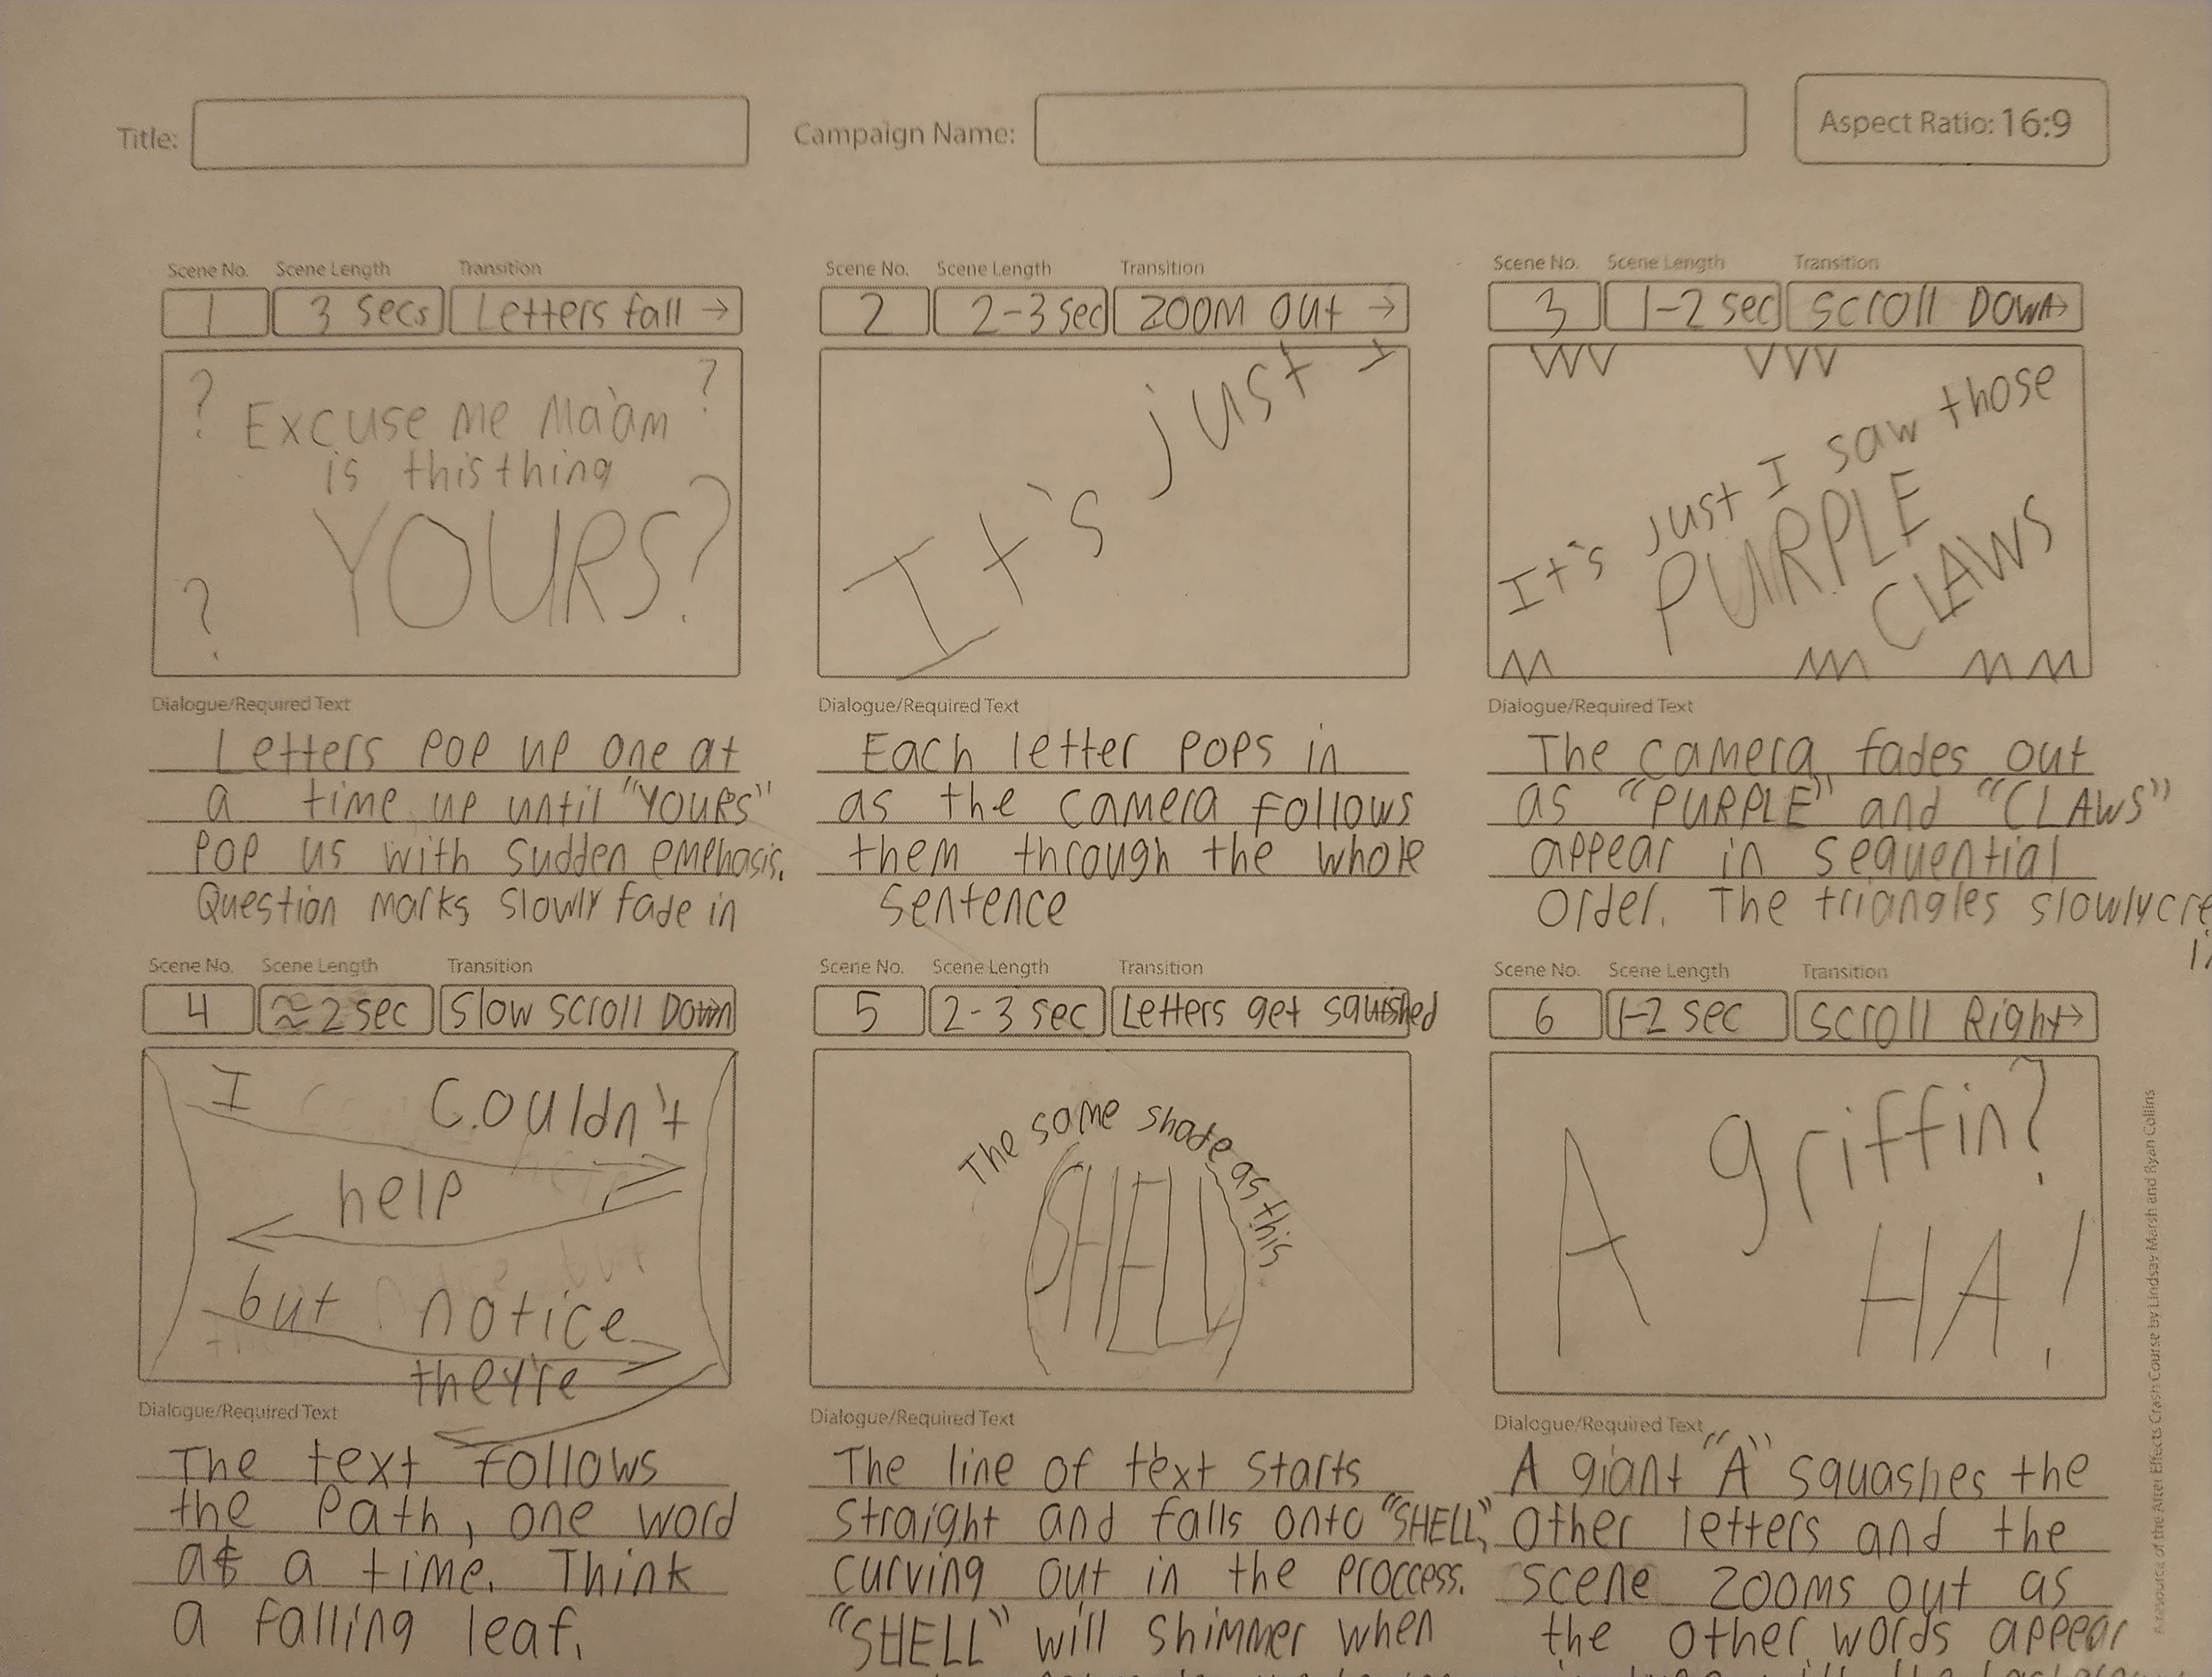 Title:
Campaign Name:
Aspect Ratio: 16:9
Scene No. Scene Length Transition
1 3 secs Letters fall →
? Excuse me Ma'am ?
is this thing
YOURS?
?
Dialogue/Required Text
Letters pop up one at
a time up until "YOURS"
pop us with sudden emphasis.
Question marks slowly fade in
Scene No. Scene Length Transition
2 2-3 sec ZOOM out →
It's just I
Dialogue/Required Text
Each letter pops in
as the camera follows
them through the whole
sentence
Scene No. Scene Length Transition
3 1-2 sec SCROLL DOWN→
It's just I saw those
PURPLE
CLAWS
Dialogue/Required Text
The camera fades out
as "PURPLE" and "CLAWS"
appear in sequential
order. The triangles slowly cre
Scene No. Scene Length Transition
4 ≈2 sec Slow scroll Down
I couldn't
help
but notice
they're
Dialogue/Required Text
The text follows
the path, one word
at a time. Think
a falling leaf.
Scene No. Scene Length Transition
5 2-3 sec Letters get squished
The same shade as this
SHELL
Dialogue/Required Text
The line of text starts
straight and falls onto "SHELL,"
curving out in the proccess.
"SHELL" will shimmer when
Scene No. Scene Length Transition
6 1-2 sec SCROLL Right→
A griffin?
HA!
Dialogue/Required Text
A giant "A" squashes the
other letters and the
scene zooms out as
the other words appear
A resource of the After Effects Crash Course by Lindsay Marsh and Ryan Collins